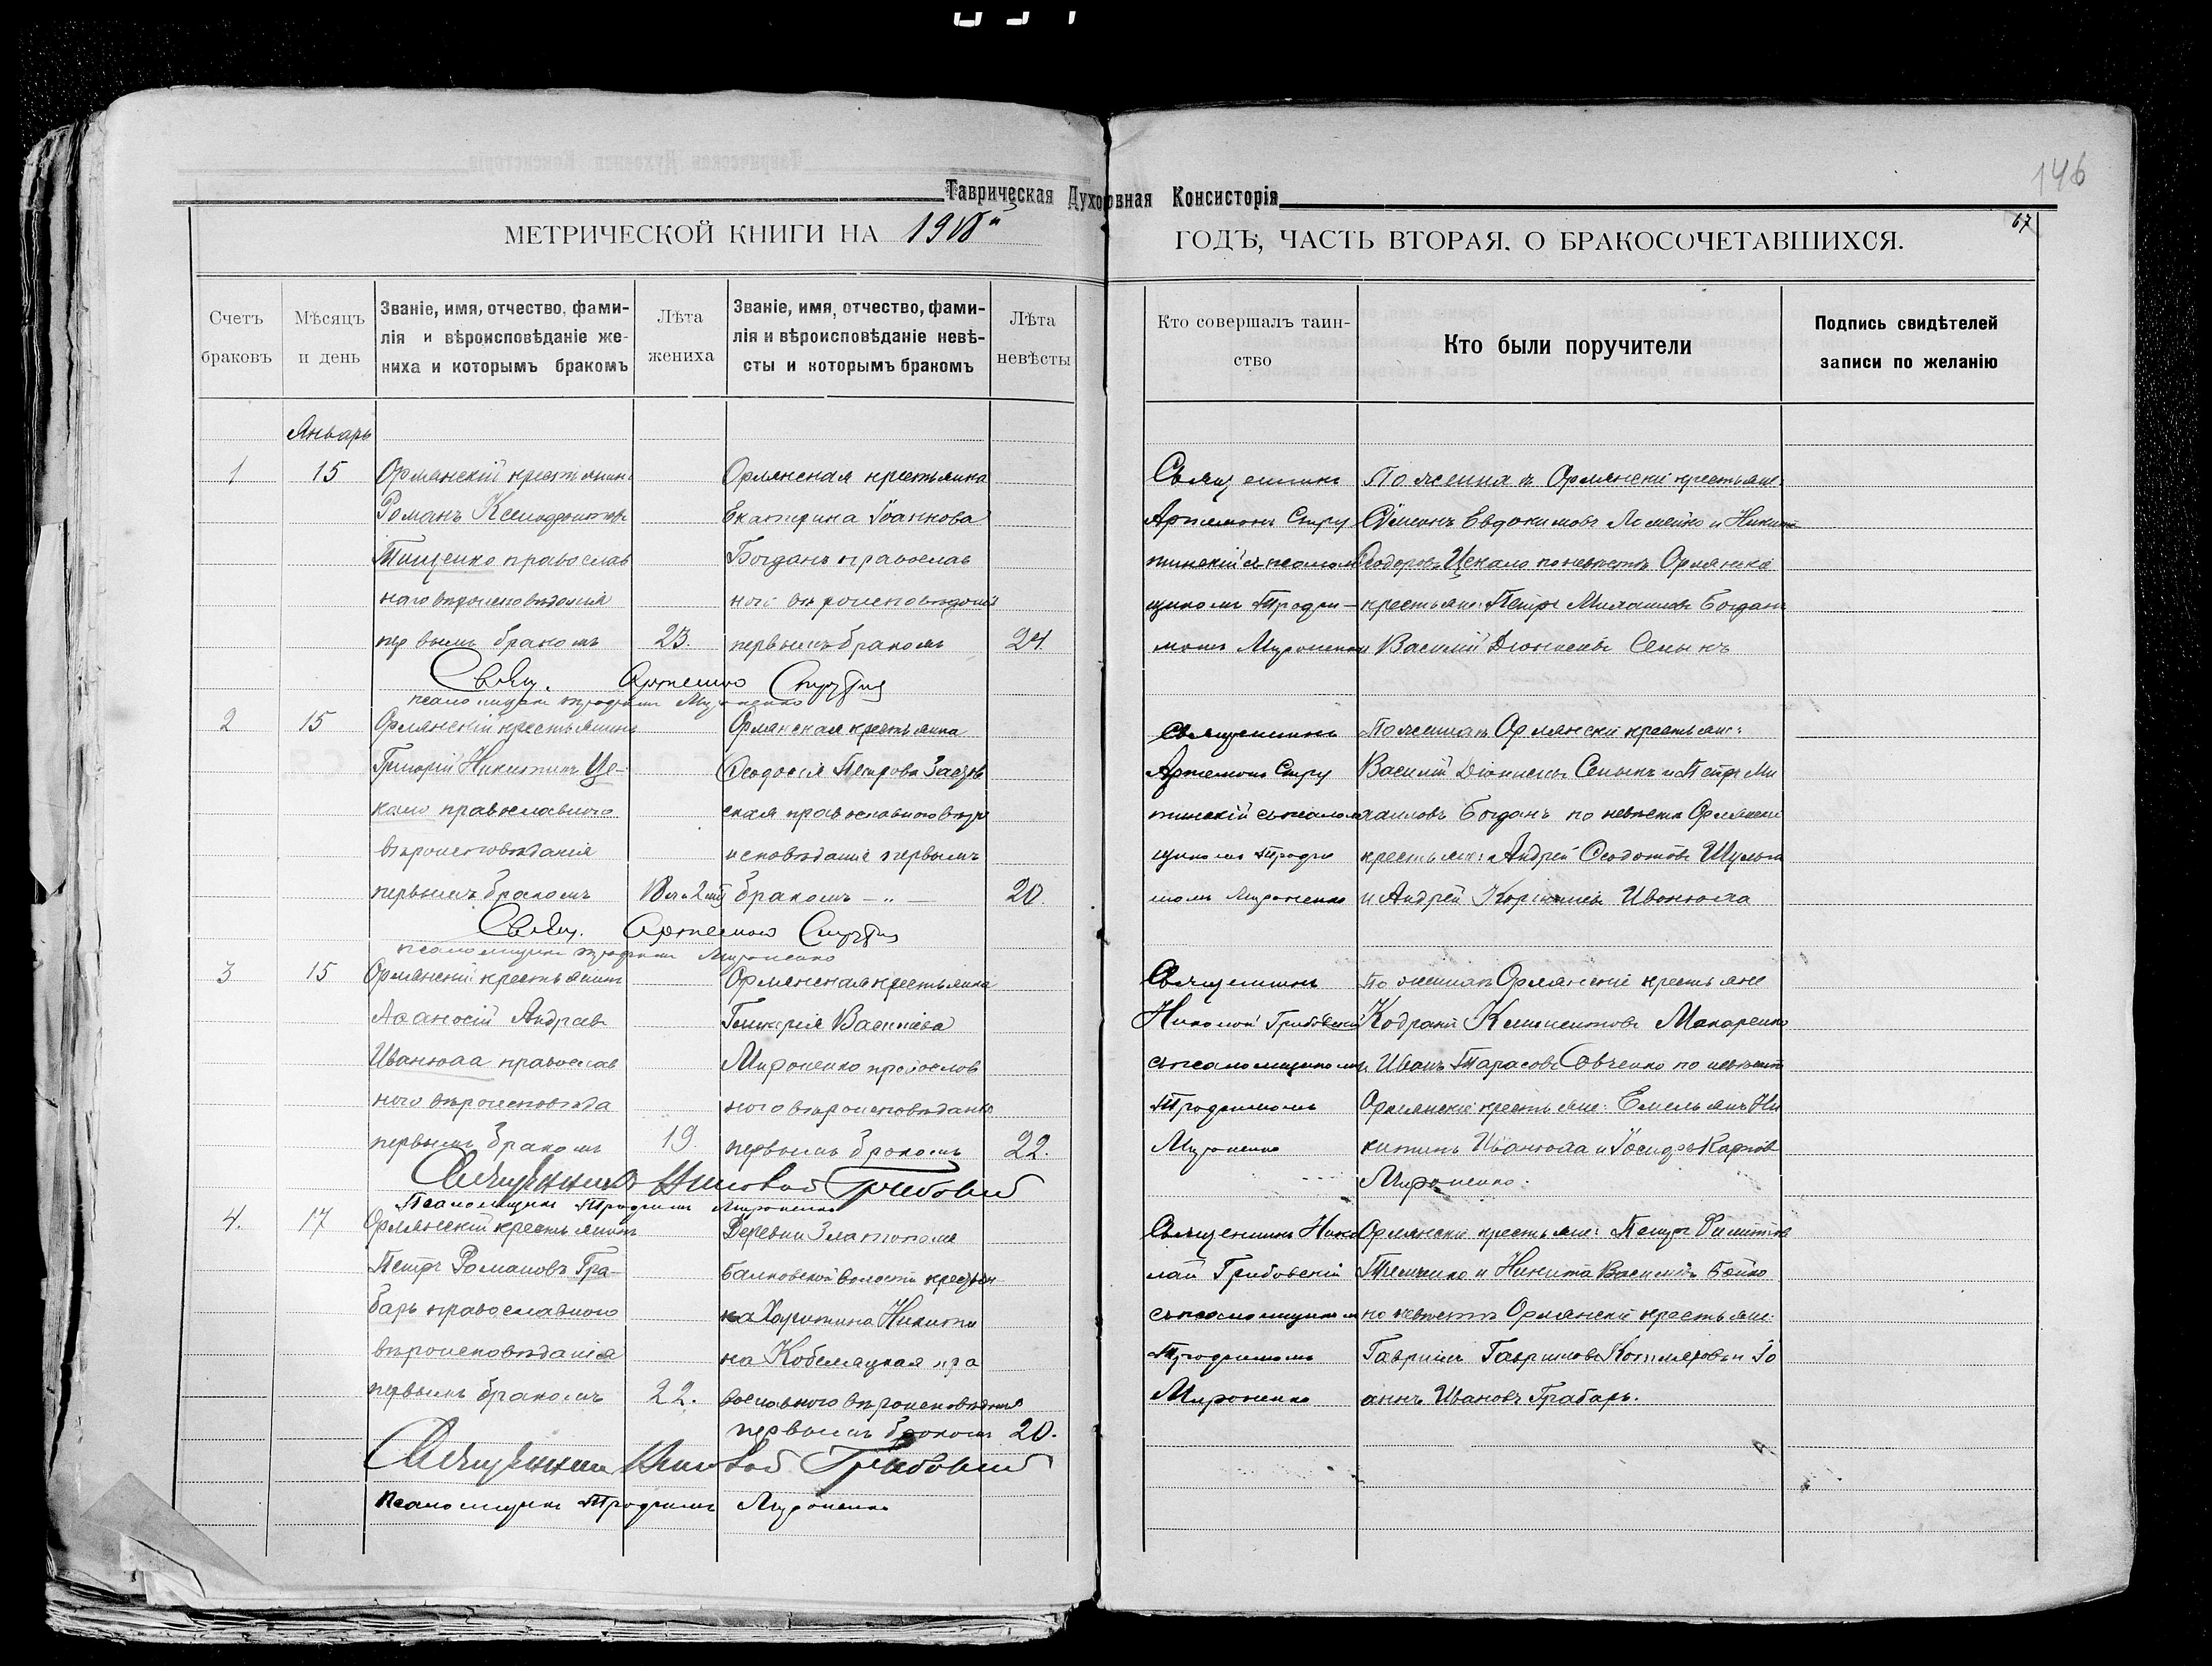 146
Таврическая Духовная Консисторія
67
МЕТРИЧЕСКОЙ КНИГИ НА 1918й
ГОДЪ, ЧАСТЬ ВТОРАЯ, О БРАКОСОЧЕТАВШИХСЯ.
Счетъ браковъ
Мѣсяцъ и день
Званіе, имя, отчество, фами-
лія и вѣроисповѣданіе же-
ниха и которымъ бракомъ
Лѣта жениха
Званіе, имя, отчество, фами-
лія и вѣроисповѣданіе невѣ-
сты и которымъ бракомъ
Лѣта невѣсты
Кто совершалъ таин-
ство
Кто были поручители
Подпись свидѣтелей
записи по желанію
Январь
1
15
Орлянскій крестьянинъ
Романъ Ксенофонтовъ
Тищенко православ
наго вѣроисповѣданія
первымъ бракомъ
23.
Орлянская крестьянка
Екатерина Іоаннова
Богданъ православ
наго вѣроисповѣданія
первымъ бракомъ
24
Священникъ
Артемонъ Спиру
тинскій съ псалом
щикомъ Трофи-
момъ Мироненко
По женихѣ Орлянскіе крестьяне:
Сѵмеонъ Евдокимовъ Ломейко и Никита
Ѳеодоровъ Цекало по невѣстѣ Орлянскіе
крестьяне: Петръ Михаиловъ Богданъ
и Василій Діонисіевъ Сенынъ
Свящ. Артемонъ
псаломщикъ Трофимъ Мироненко
2
15
Орлянскій крестьянинъ
Григорій Никитинъ Це-
кало православнаго
вѣроисповѣданія
первымъ бракомъ
18
Орлянская крестьянка
Ѳеодосія Петрова
православнаго вѣро
исповѣданія первымъ
бракомъ - „ -
20.
Священникъ
Артемонъ Спиру
тинскій съ псалом
щикомъ Трофи
момъ Мироненко
По женихѣ Орлянскіе крестьяне:
Василій Діонисіевъ Сенынъ и Петръ Ми
хаиловъ Богданъ по невѣстѣ Орлянскіе
крестьяне: Андрей Ѳеодотовъ Шульга
и Андрей Иванюха
Свящ. Артемонъ
псаломщикъ Трофимъ Мироненко
3
15
Орлянскій крестьянинъ
Аѳанасій Андреевъ
Иванюха православ
наго вѣроисповѣда
первымъ бракомъ
19.
Орлянская крестьянка
Гликерія Васильева
Мироненко православ
наго вѣроисповѣданія
первымъ бракомъ
22.
Священникъ
Николай Грибовскій
съ псаломщикомъ
Трофимомъ
Мироненко
По женихѣ Орлянскіе крестьяне
Кодратъ Климентовъ Макаренко
и Иванъ Тарасовъ Савченко по невѣстѣ
Орлянскіе крестьяне: Емельянъ Ни
китинъ Иванюха и Іосифъ Карпов
Мироненко.
Священникъ Николай Грибовскій
Псаломщикъ Трофимъ Мироненко
4.
17
Орлянскій крестьянинъ
Петръ Романовъ Гра-
барь православнаго
вѣроисповѣданія
первымъ бракомъ
22.
Деревни Златополя
Балковской волости крестьян
ка Харитина Никити
на Кобеляцкая пра
вославнаго вѣроисповѣданія
первымъ бракомъ
20.
Священникъ Нико
лай Грибовскій
съ псаломщикомъ
Трофимомъ
Мироненко
Орлянскіе крестьяне: Петръ Филиппов
и Никита Васильевъ Бойко
по невѣстѣ Орлянскіе крестьяне:
Гавріилъ Гавриловъ Котляровъ и Іо
аннъ Ивановъ Грабарь.
Священникъ Николай Грибовскій
Псаломщикъ Трофимъ Мироненко